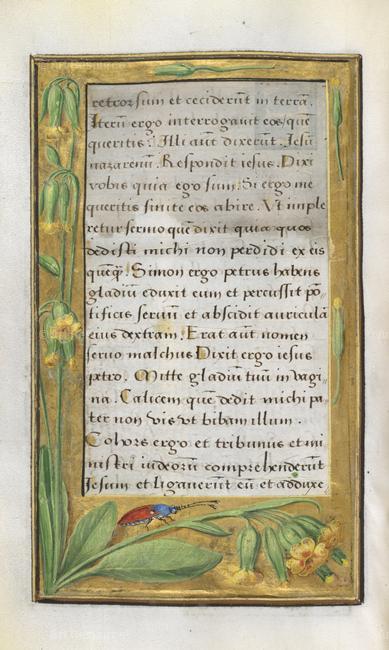 retrorsum et cecider̄ut in terrā.
Iterū ergo interrogauit eos/quē
queritis? Illi aūt dixerūt. Jesū
nazarenum. Respondit iesus. Dixi
vobis quia ego sum. Si ergo me
queritis sinite eos abire. Vt imple
retur sermo quē dixit quia quos
dedisti michi non perdidi ex eis
quēqꝫ. Simon ergo petrus habens
gladiū eduxit eum et percussit pō-
tificis seruū et abscidit auriculā
eius dextram. Erat aūt nomen
seruo malchus Dixit ergo iesus
petro. Mitte gladiū tuū in vagi-
na. Calicem quē dedit michi pa-
ter non vis vt bibam illum.
Cohors ergo et tribunus et mi
nistri iudeorū comprehenderūt
Jesum et ligauerūt eū et adduxe